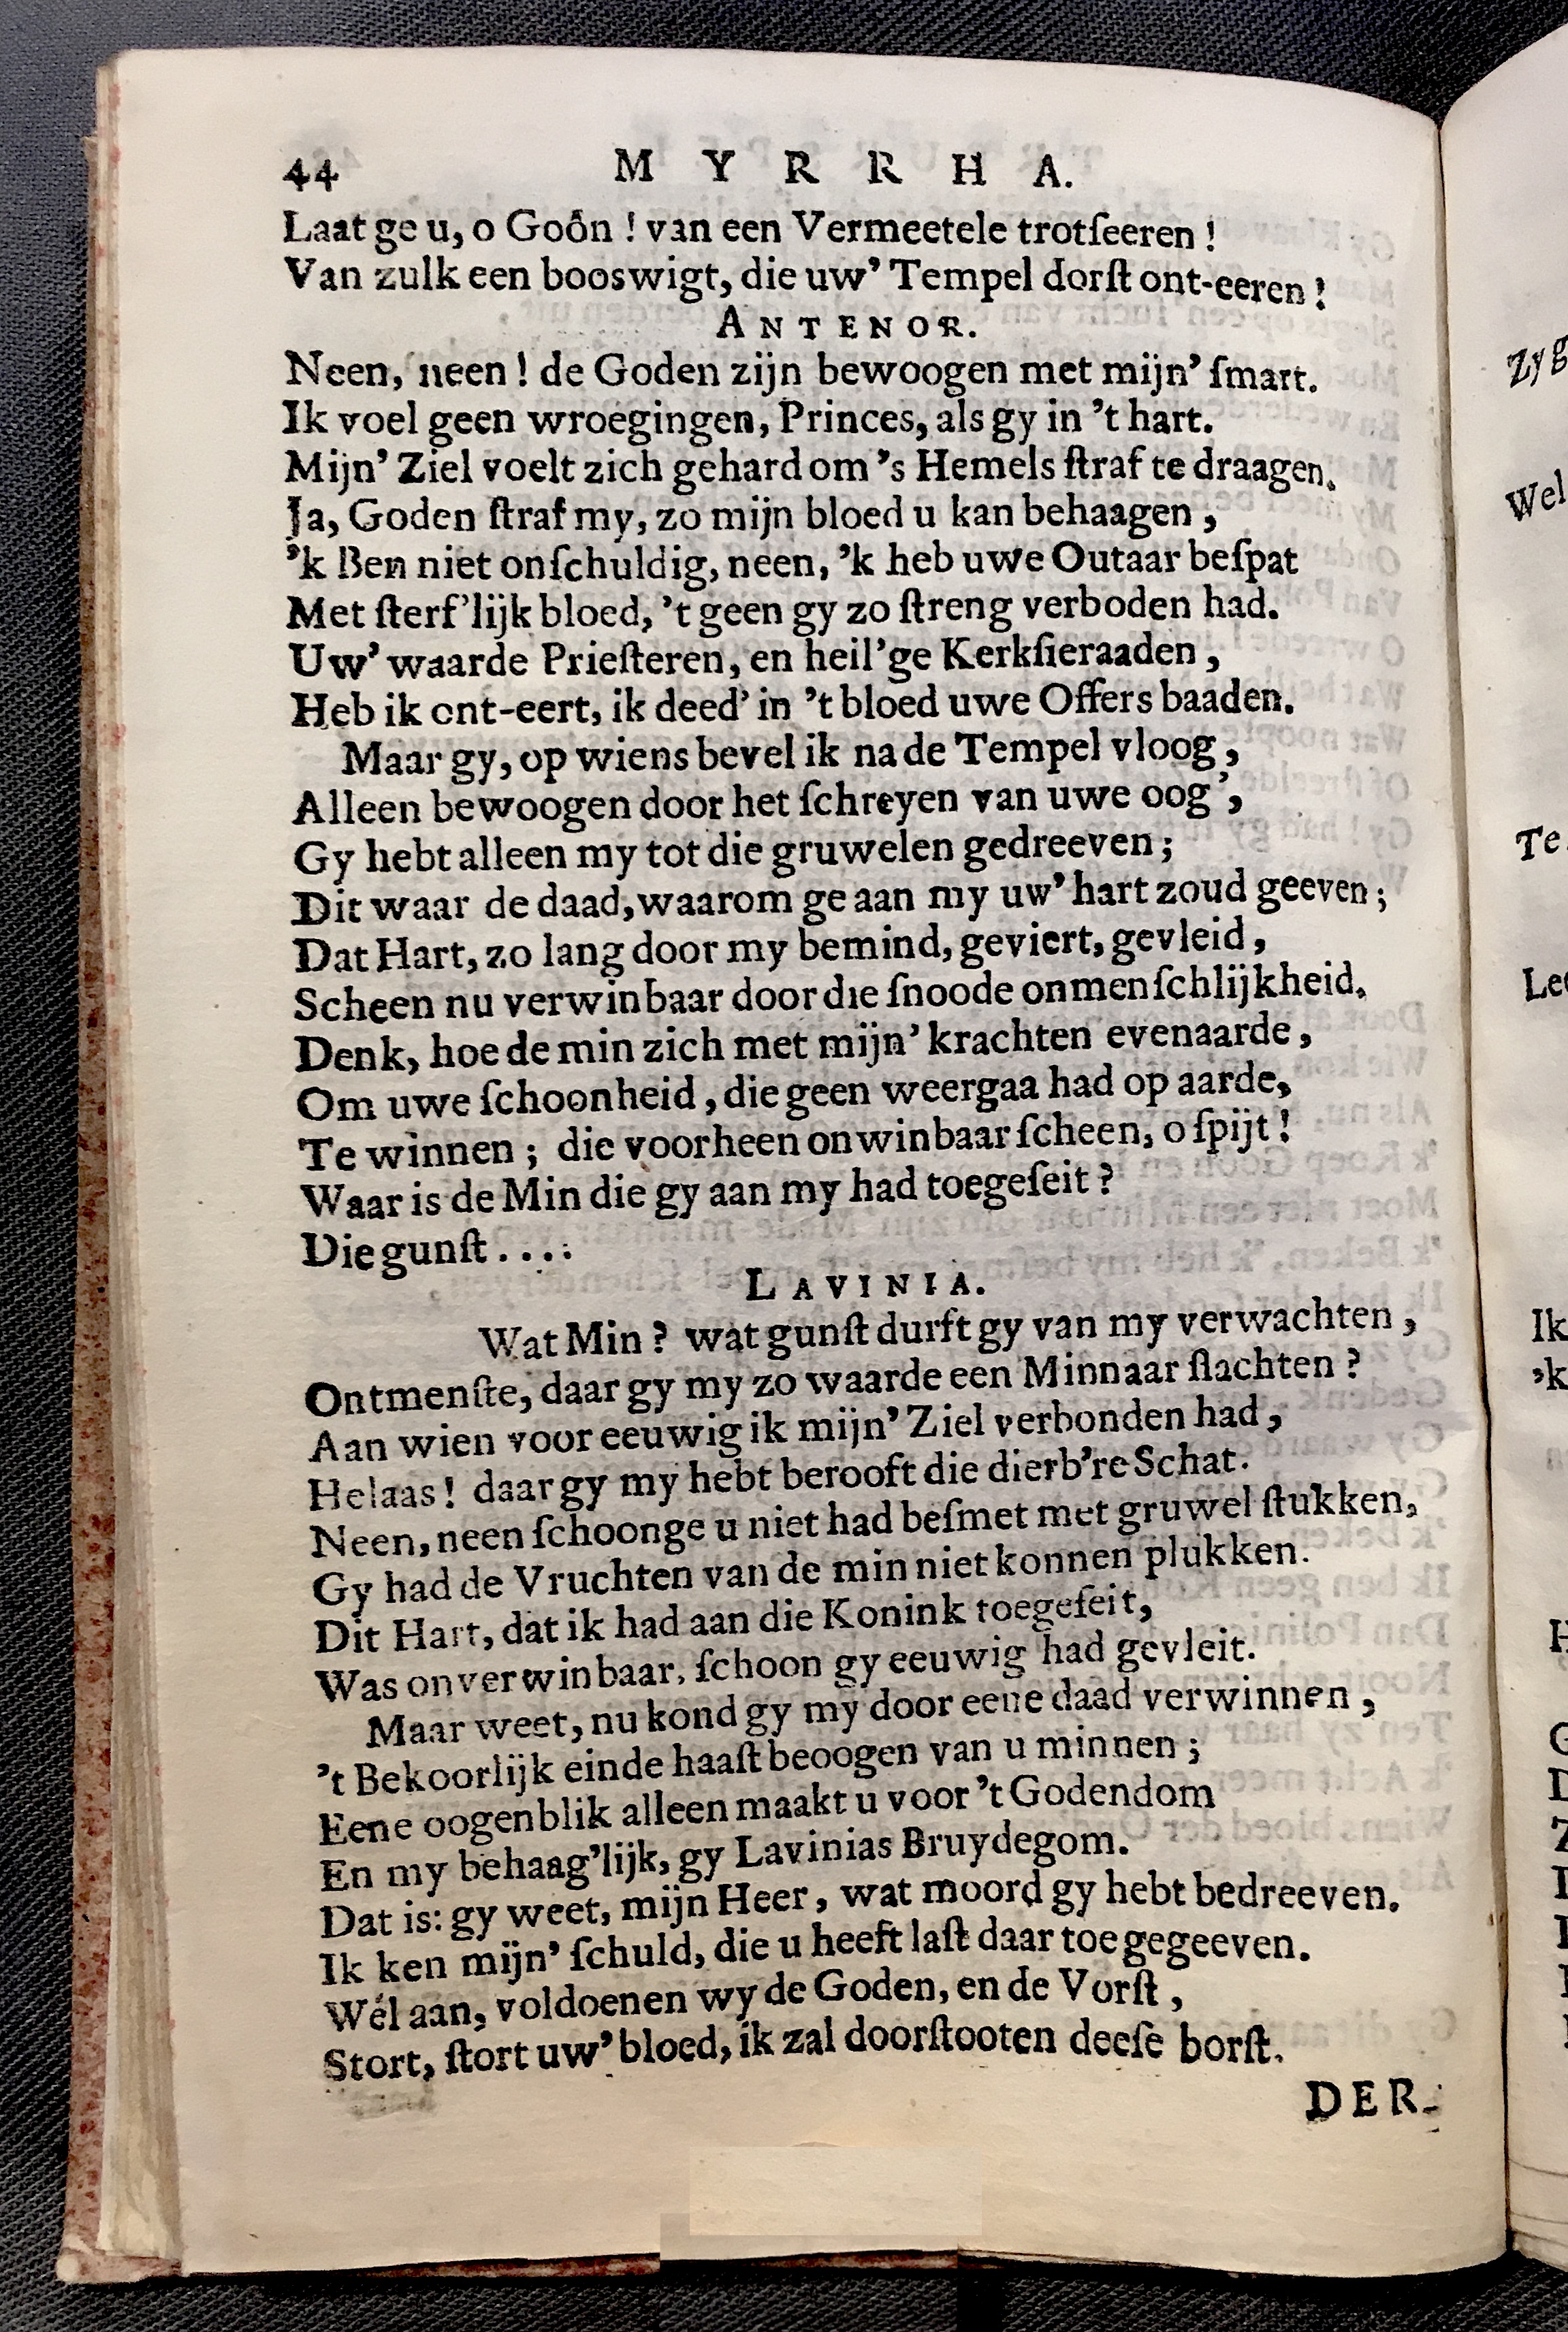 44 MYRRHA.
Laat ge u, o Goôn! van een Vermeetele trotſeeren!
Van zulk een booswigt, die uw’ Tempel dorſt ont-eeren!
ANTENOR.
Neen, neen! de Goden zijn bewoogen met mijn’ ſmart.
Ik voel geen wroegingen, Princes, als gy in ’t hart.
Mijn’ Ziel voelt zich gehard om ’s Hemels ſtraf te draagen.
Ja, Goden ſtraf my, zo mijn bloed u kan behaagen,
’k Ben niet onſchuldig, neen, ’k heb uwe Outaar beſpat
Met ſterf’lijk bloed, ’t geen gy zo ſtreng verboden had.
Uw’ waarde Prieſteren, en heil’ge Kerkſieraaden,
Heb ik ont-eert, ik deed’ in ’t bloed uwe Offers baaden.
Maar gy, op wiens bevel ik na de Tempel vloog,
Alleen bewoogen door het ſchreyen van uwe oog’,
Gy hebt alleen my tot die gruwelen gedreeven;
Dit waar de daad, waarom ge aan my uw’ hart zoud geeven;
Dat Hart, zo lang door my bemind, geviert, gevleid,
Scheen nu verwinbaar door die ſnoode onmenſchlijkheid.
Denk, hoe de min zich met mijn’ krachten evenaarde,
Om uwe ſchoonheid, die geen weergaa had op aarde,
Te winnen; die voorheen onwinbaar ſcheen, o ſpijt!
Waar is de Min die gy aan my had toegeſeit?
Die gunſt....
LAVINIA.
Wat Min? wat gunſt durft gy van my verwachten,
Ontmenſte, daar gy my zo waarde een Minnaar ſlachten?
Aan wien voor eeuwig ik mijn’ Ziel verbonden had,
Helaas! daar gy my hebt berooft die dierb’re Schat.
Neen, neen ſchoon ge u niet had beſmet met gruwel ſtukken,
Gy had de Vruchten van de min niet konnen plukken.
Dit Hart, dat ik had aan die Konink toegeſeit,
Was onverwinbaar, ſchoon gy eeuwig had gevleit.
Maar weet, nu kond gy my door eene daad verwinnen,
’t Bekoorlijk einde haaſt beoogen van u minnen;
Eene oogenblik alleen maakt u voor ’t Godendom
En my behaag’lijk, gy Lavinias Bruydegom.
Dat is: gy weet, mijn Heer, wat moord gy hebt bedreeven.
Ik ken mijn’ ſchuld, die u heeft laſt daar toe gegeeven.
Wél aan, voldoenen wy de Goden, en de Vorſt,
Stort, ſtort uw’ bloed, ik zal doorſtooten deeſe borſt.
DER-
Zyg
Wel
Te
Ik
’k